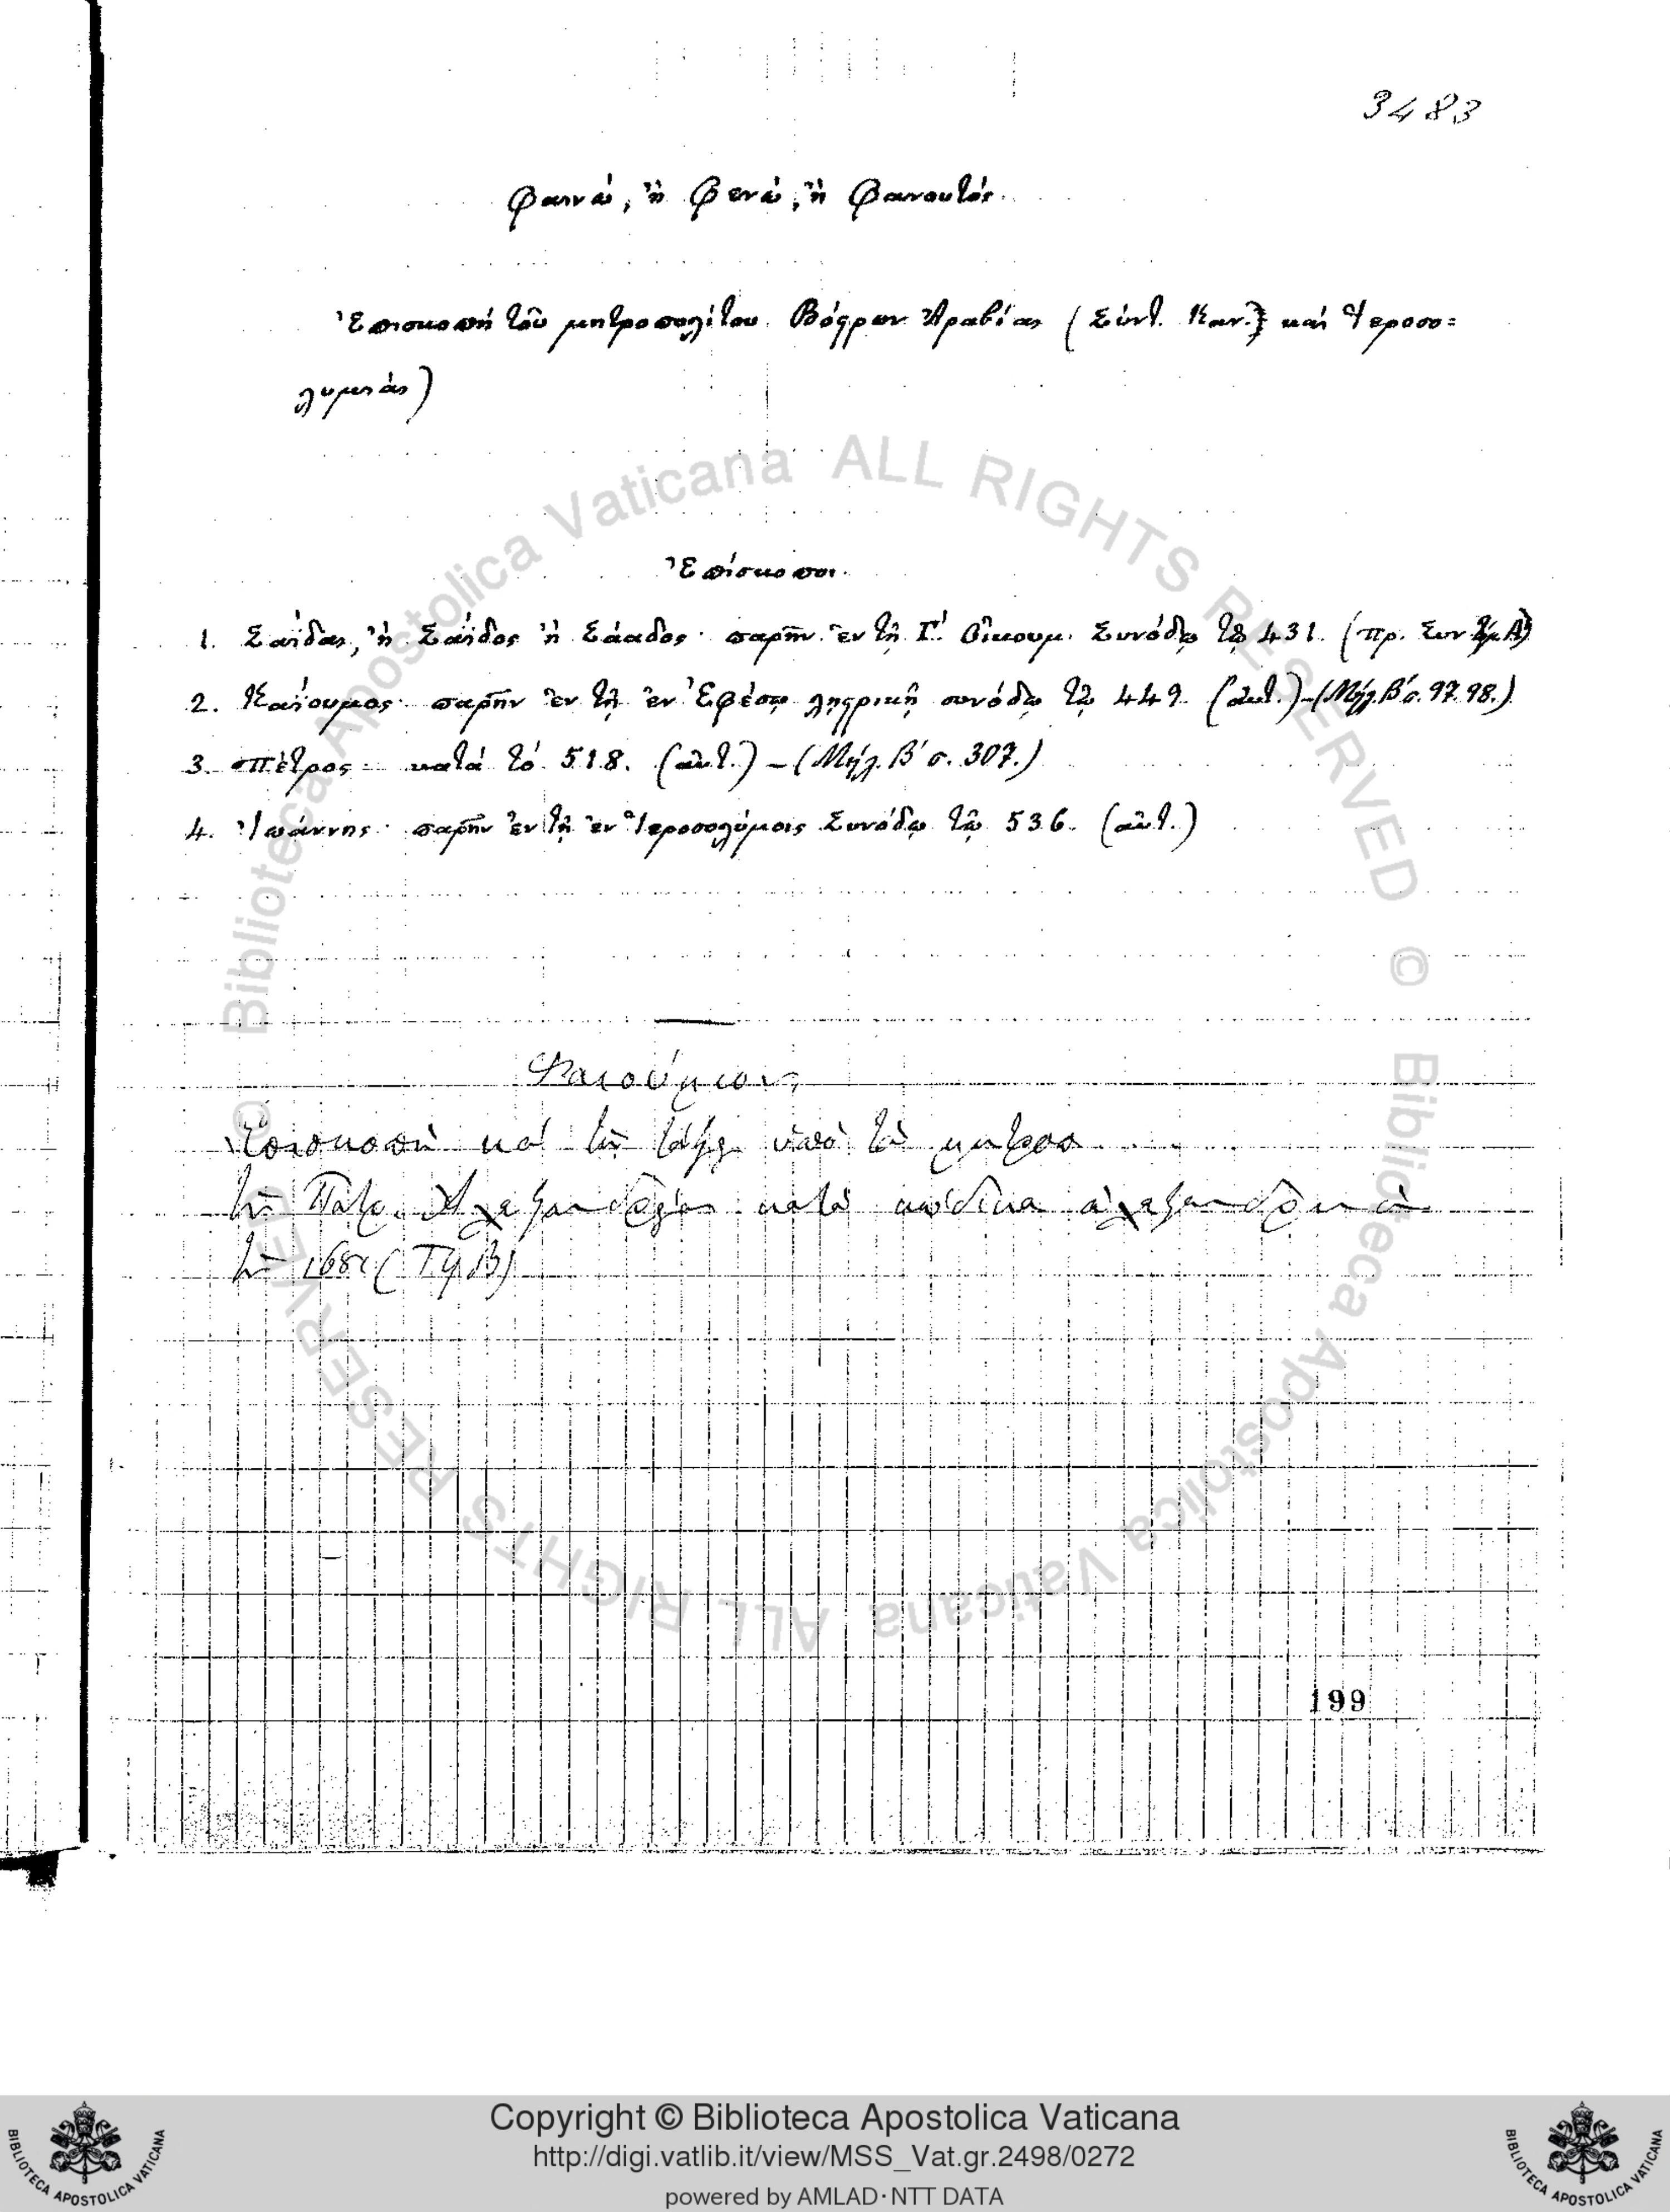 3483
Φαινώ, ἢ Φενώ, ἢ Φανουτός.
Ἐπισκοπὴ τοῦ μητροπολίτου Βόστρων Ἀραβίας (Σύντ. Καν.) καὶ Ἱεροσο=
λυμιάς)
Ἐπίσκοποι.
1. Σαΐδας, ἢ Σάϊδος ἢ Σάαδος· παρῆν ἐν τῇ Γ΄ Οἰκουμ. Συνόδῳ τῷ 431. (πρ. Συν
2. Καϊουμος· παρῆν ἐν τῇ ἐν Ἐφέσῳ λῃστρικῇ συνόδῳ τῷ 449. (αὐτ.)-(Μήλ. Β΄ σ. 97. 98.)
3. Πέτρος· κατὰ τὸ 518. (αὐτ.) - (Μήλ. Β΄ σ. 307.)
4. Ἰωάννης· παρῆν ἐν τῇ ἐν Ἱεροσολύμοις Συνόδῳ τῷ 536. (αὐτ.)
Ἐπισκοπὴ ὑπὸ
κατὰ κώδικα ἀλεξανδρινὸν
199
© Biblioteca Apostolica Vaticana ALL RIGHTS RESERVED
© Biblioteca Apostolica Vaticana ALL RIGHTS RESERVED
BIBLIOTECA APOSTOLICA VATICANA
Copyright © Biblioteca Apostolica Vaticana
http://digi.vatlib.it/view/MSS_Vat.gr.2498/0272
powered by AMLAD·NTT DATA
BIBLIOTECA APOSTOLICA VATICANA